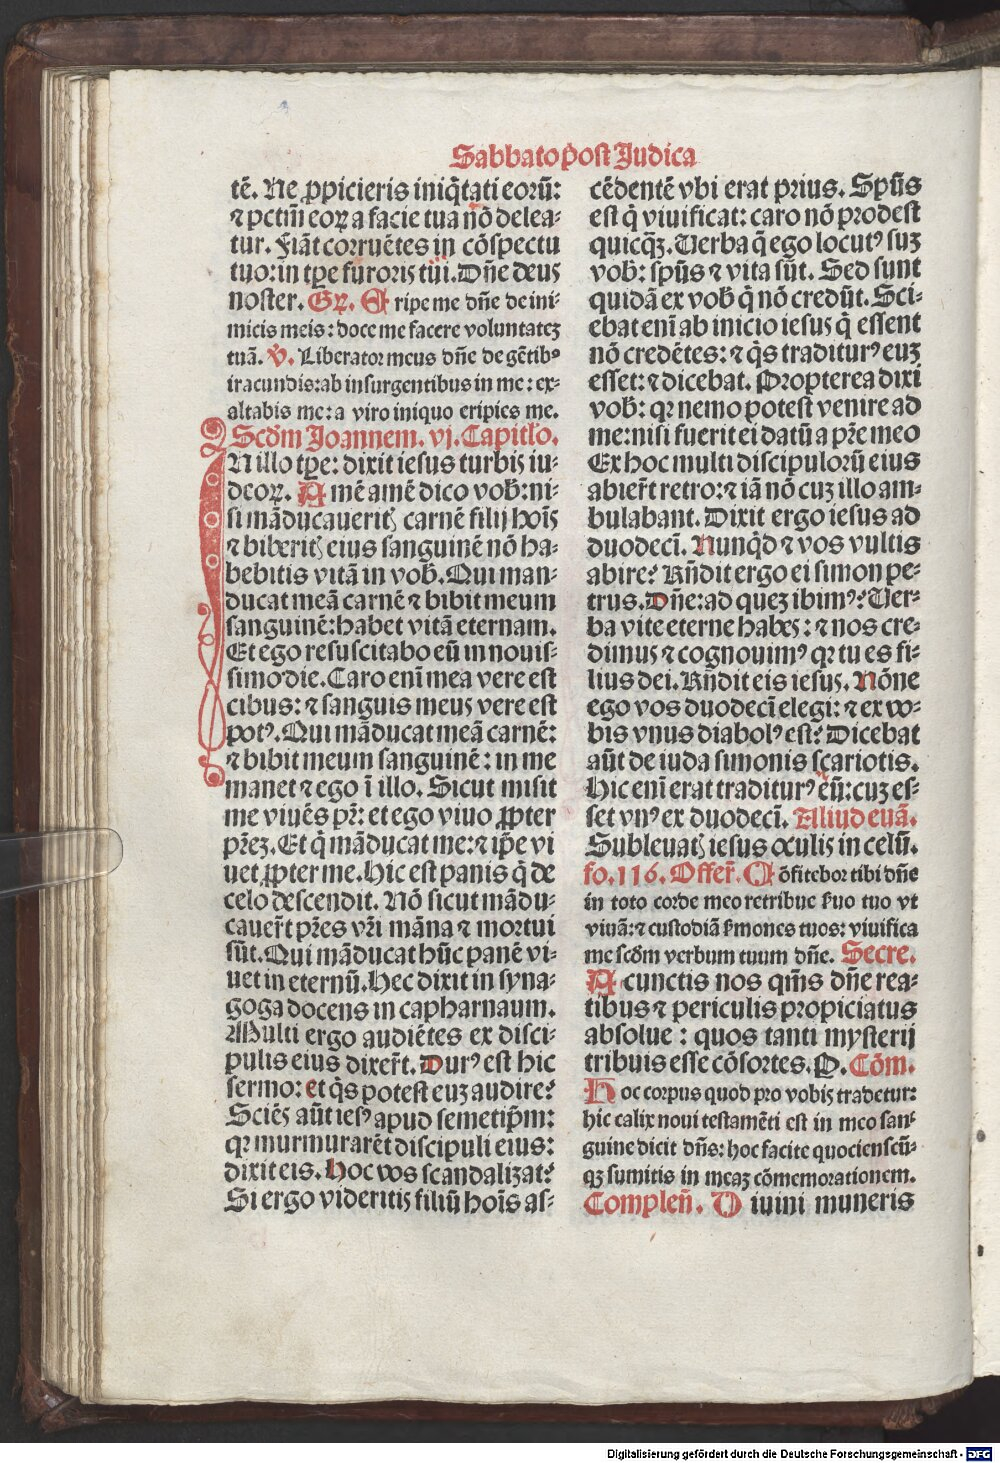 Sabbato ꝓost Judica
tē. Ne ꝓpicieris iniq̄tati eorū:
⁊ pctm̄ eoꝝ a facie tua nō delea-
tur. Fiāt corruētes in cōspectu
tuo: in tꝑe furoris tui. Dn̄e deus
noster. Gꝝ. Eripe me dn̄e de ini-
micis meis: doce me facere voluntateꝫ
tuā. V̄. Liberator meus dn̄e de gētibꝰ
iracundis: ab insurgentibus in me: ex-
altabis me: a viro iniquo eripies me.
Scd̄m Joannem. vj. Capitl̄o.
IN illo tꝑe: dixit iesus turbis iu-
deoꝝ. Amē amē dico vob̄: ni-
si māducaueritꝭ carnē filij hoīs
⁊ biberitꝭ eius sanguinē nō ha-
bebitis vitā in vob̄. Qui man-
ducat meā carnē ⁊ bibit meum
sanguinē: habet vitā eternam.
Et ego resuscitabo eū in nouis-
simo die. Caro enī mea vere est
cibus: ⁊ sanguis meus vere est
potꝰ. Qui māducat meā carnē:
⁊ bibit meum sanguinē: in me
manet ⁊ ego ī illo. Sicut misit
me viuēs pr̄: et ego viuo ꝓpter
pr̄eꝫ. Et q̄ māducat me: ⁊ ip̄e vi
uet ꝓpter me. Hic est panis q̄ de
celo descendit. Nō sicut mādu-
cauer̄t pr̄es vr̄i māna ⁊ mortui
sūt. Qui māducat hūc panē vi-
uet in eternū. Hec dixit in syna-
goga docens in capharnaum.
Multi ergo audiētes ex disci-
pulis eius dixer̄t. Durꝰ est hic
sermo: et q̄s potest euꝫ audire?
Sciēs aūt iesꝰ apud semetip̄m:
qꝛ murmurarēt discipuli eius:
dixit eis. Hoc vos scandalizat?
Si ergo videritis filiū hoīs as-
cēdentē vbi erat prius. Spūs
est q̄ viuificat: caro nō prodest
quicq̄ꝫ. Verba q̄ ego locutꝰ suꝫ
vob̄: spūs ⁊ vita sūt. Sed sunt
quidā ex vob̄ q̄ nō credūt. Sci-
ebat enī ab inicio iesus q̄ essent
nō credētes: ⁊ q̄s traditurꝰ euꝫ
esset: ⁊ dicebat. Propterea dixi
vob̄: qꝛ nemo potest venire ad
me: nisi fuerit ei datū a pr̄e meo
Ex hoc multi discipulorū eius
abier̄t retro: ⁊ iā nō cuꝫ illo am-
bulabant. Dixit ergo iesus ad
duodecī. Nunq̄d ⁊ vos vultis
abire? Rn̄dit ergo ei simon pe-
trus. Dn̄e: ad queꝫ ibimꝰ? Ver-
ba vite eterne habes: ⁊ nos cre-
dimus ⁊ cognouimꝰ qꝛ tu es fi-
lius dei. Rn̄dit eis iesus. Nōne
ego vos duodecī elegi: ⁊ ex vo-
bis vnus diabolꝰ est? Dicebat
aūt de iuda simonis scariotis.
Hic enī erat traditurꝰ eū: cuꝫ es-
set vnꝰ ex duodecī. Aliud euā.
Subleuatꝭ iesus oculis in celū.
fo. 116. Offer̄. Cōfitebor tibi dn̄e
in toto corde meo retribue ẜuo tuo vt
viuā: ⁊ custodiā ẜmones tuos: viuifica
me scd̄m verbum tuum dn̄e. Secre.
A cunctis nos qm̄s dn̄e rea-
tibus ⁊ periculis propiciatus
absolue: quos tanti mysterij
tribuis esse cōsortes. P. Cōm.
Hoc corpus quod pro vobis tradetur:
hic calix noui testamēti est in meo san-
guine dicit dn̄s: hoc facite quociensc̄ū-
qꝫ sumitis in meaꝫ cōmemorationem.
Complen̄. Diuini muneris
Digitalisierung gefördert durch die Deutsche Forschungsgemeinschaft - DFG